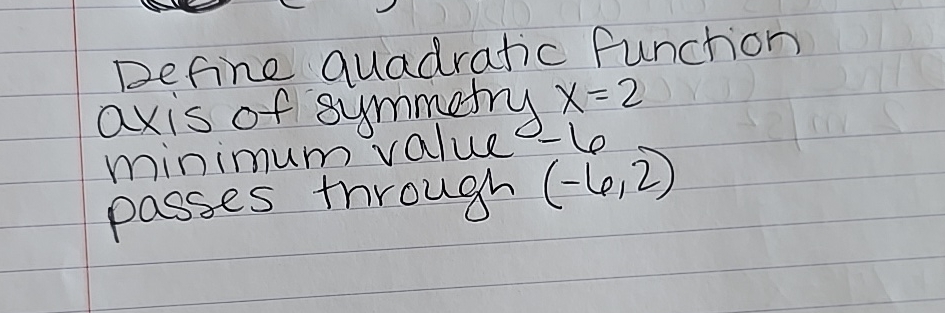 Define quadratic function
axis of symmetry x=2
minimum value -6
passes through (-6,2)